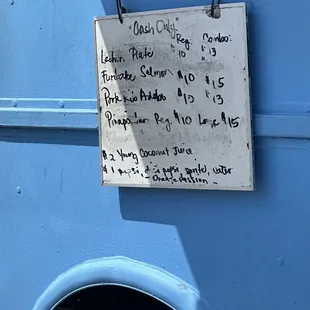 "Cash Only"
Reg. Combo:
Lechon Plate $10 $13
Furikake Salmon $10 $15
Pork Rio Adobo $10 $13
Reg. $10 Large $15
$2 Young Coconut Juice
$1 pepsi, diet pepsi, sprite, water
- Orange Passion -